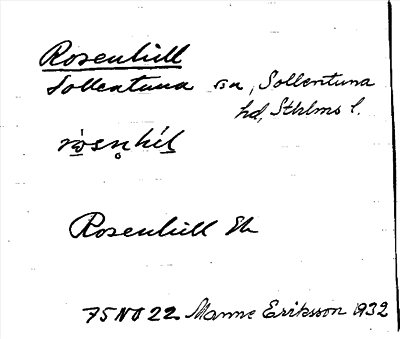 Rosenhill
Sollentuna sn, Sollentuna
hd, Sthlms l.
Rosenhill Ek
75 NO 22 Manne Eriksson 1932